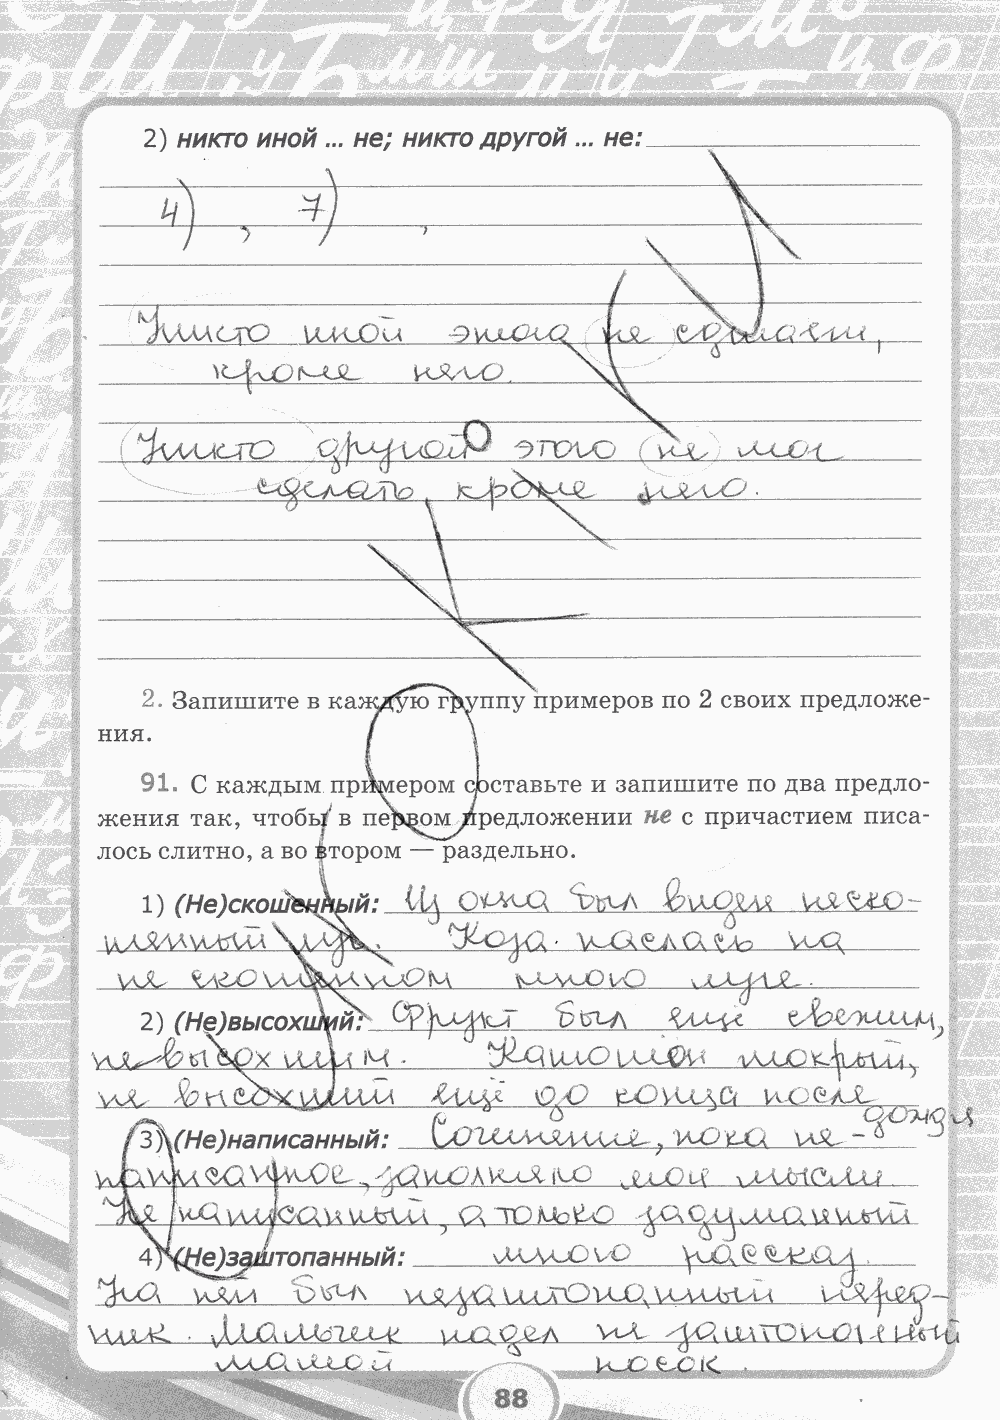 2) никто иной ... не; никто другой ... не:
4) , 7) ,
Никто иной этого не сделает,
кроме него.
Никто другой этого не мог
сделать, кроме него.
2. Запишите в каждую группу примеров по 2 своих предложе-
ния.
91. С каждым примером составьте и запишите по два предло-
жения так, чтобы в первом предложении не с причастием писа-
лось слитно, а во втором — раздельно.
1) (Не)скошенный: Из окна был виден неско-
шенный луг. Коза паслась на
не скошенном мною луге.
2) (Не)высохший: Фрукт был ещё свежим,
невысохшим. Капюшон мокрый,
не высохший ещё до конца после
дождя
3) (Не)написанный: Сочинение, пока не-
написанное, заполняло мои мысли.
Не написанный, а только задуманный
4) (Не)заштопанный: мною рассказ.
На ней был незаштопанный перед-
ник. Мальчик надел не заштопанный
мамой носок.
88